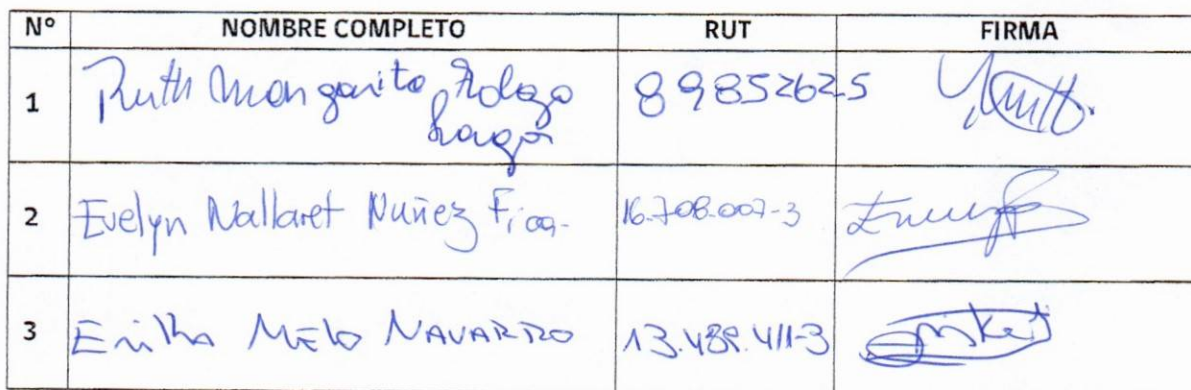 N° NOMBRE COMPLETO RUT FIRMA
1 Ruth Margarita 8985262-5
2 Evelyn Nallaret Nuñez 16.708.007-3
3 Erika Melo NAVARRO 13.489.411-3